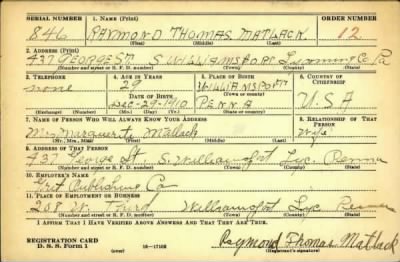 SERIAL NUMBER 1. NAME (Print) ORDER NUMBER
846 RAYMOND THOMAS MATLACK 12
(First) (Middle) (Last)
2. ADDRESS (Print)
437 GEORGE ST. S. WILLIAMSPORT Lycoming Co. Pa
(Number and street or R. F. D. number) (Town) (County) (State)
3. TELEPHONE 4. AGE IN YEARS 5. PLACE OF BIRTH 6. COUNTRY OF CITIZENSHIP
none 29 WILLIAMSPORT
DATE OF BIRTH (Town or county)
DEC-29-1910 PENNA U.S.A
(Exchange) (Number) (Mo.) (Day) (Yr.) (State or country)
7. NAME OF PERSON WHO WILL ALWAYS KNOW YOUR ADDRESS 8. RELATIONSHIP OF THAT PERSON
Mrs Marguerite Matlack Wife
(Mr., Mrs., Miss) (First) (Middle) (Last)
9. ADDRESS OF THAT PERSON
437 George St. S. Williamsport Lyc. Penna
(Number and street or R. F. D. number) (Town) (County) (State)
10. EMPLOYER'S NAME
Grit Publishing Co
11. PLACE OF EMPLOYMENT OR BUSINESS
208 W. Third Williamsport Lyc Penna
(Number and street or R. F. D. number) (Town) (County) (State)
I AFFIRM THAT I HAVE VERIFIED ABOVE ANSWERS AND THAT THEY ARE TRUE.
REGISTRATION CARD
D. S. S. Form 1 (over) 16-17105 Raymond Thomas Matlack
(Registrant's signature)